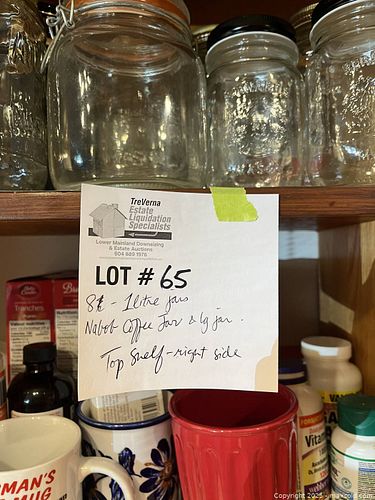 TreVerna
Estate
Liquidation
Specialists
Lower Mainland Downsizing
& Estate Auctions
604 889 1976
LOT # 65
8 - 1 litre jars
Nabob Coffee Jar & lg jar.
Top Shelf - right side
Betty Crocker
Tranches
MAN'S
MUG
Vita
Copyright 2025 - maxsold.com